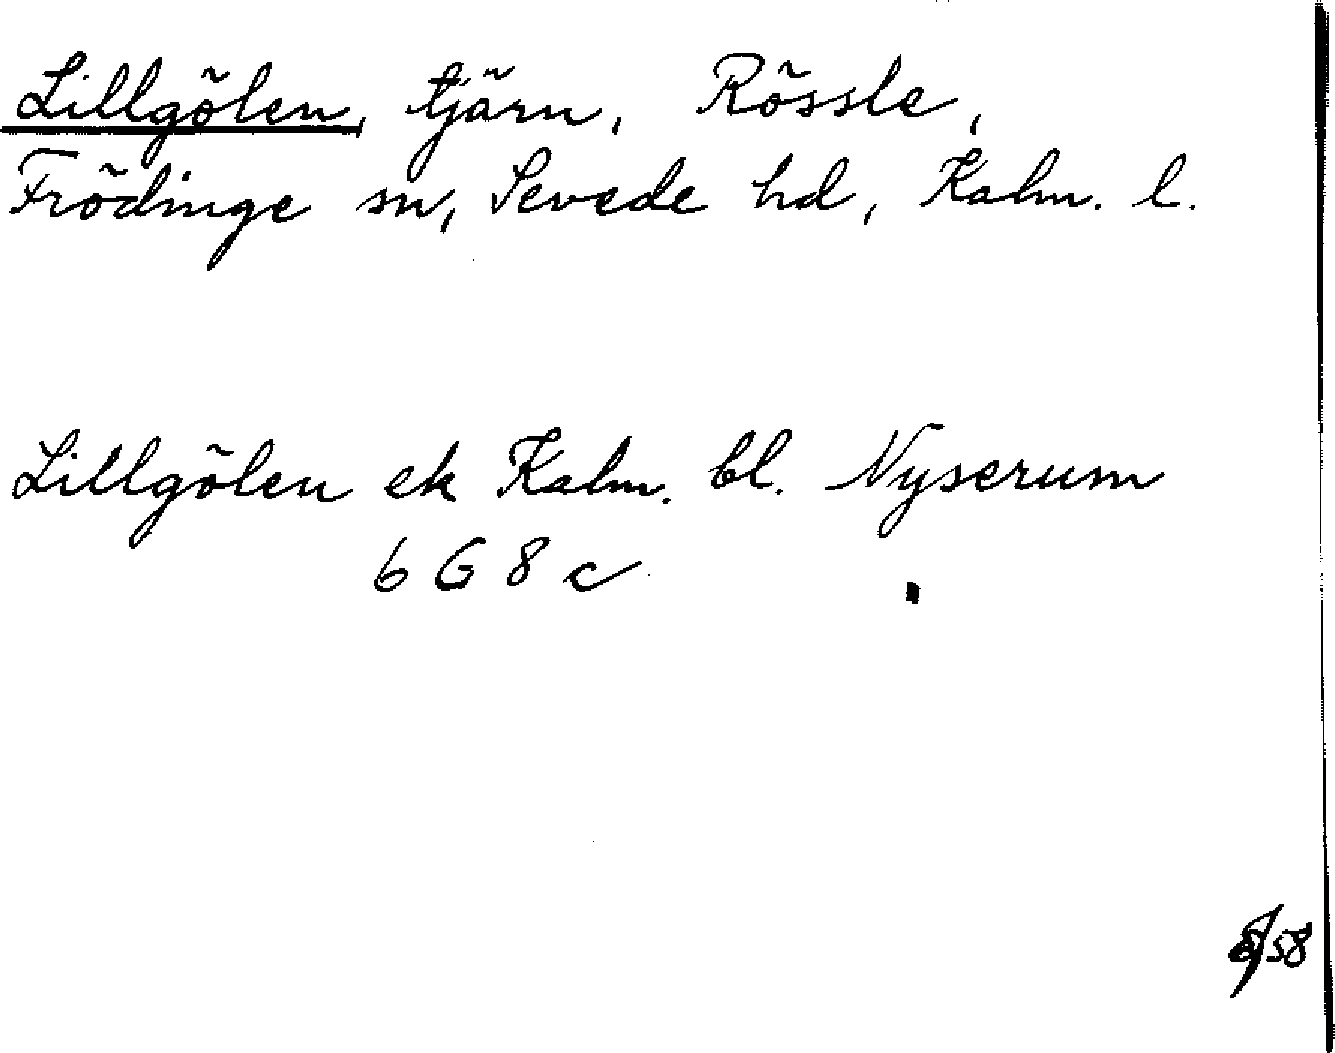 Lillgölen, tjärn, Rössle,
Frödinge sn, Sevede hd, Kalm. l.
Lillgölen ek Kalm. bl. Nyserum
6 G 8 c